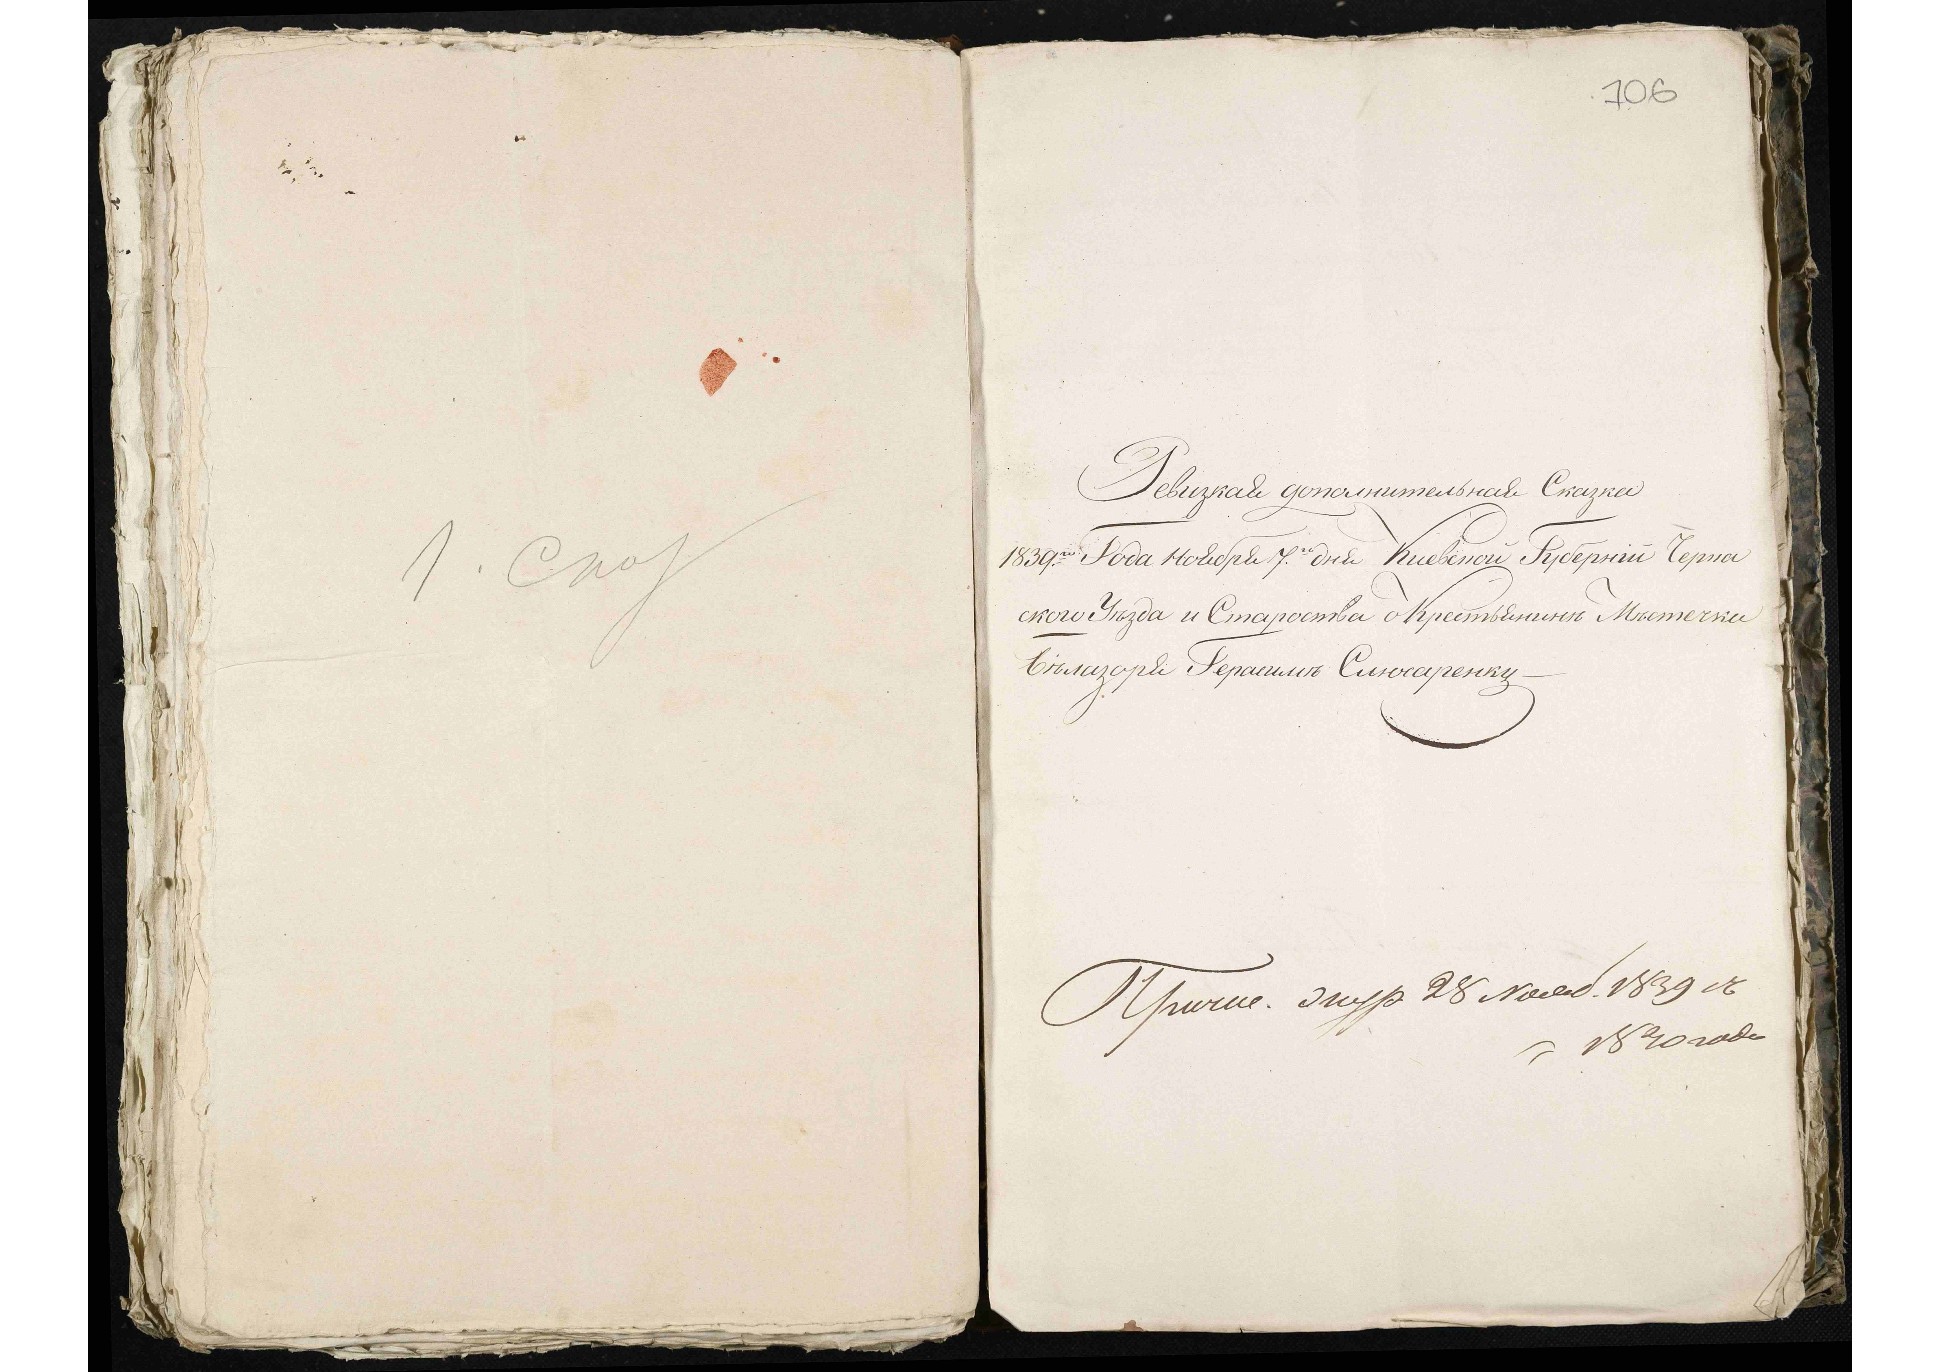 706
Ревизкая дополнительная Сказка
1839.го Года Ноября 7.го дня Киевской Губернии Черка
ского Уѣзда и Староства о Крестьянинѣ Мѣстечка
Бѣлазоря Герасимѣ Слюсаренку
28 Нояб. 1839
1840 года